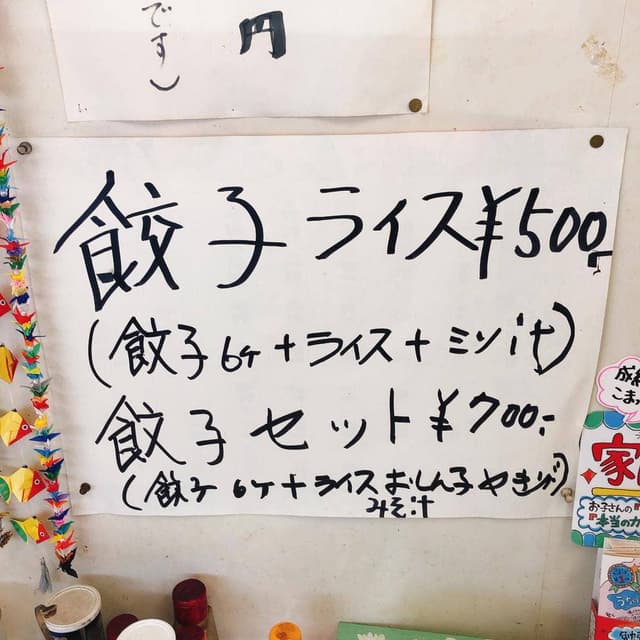 です)
円
餃子ライス¥500
(餃子6ケ+ライス+ミソ汁)
餃子セット¥700-
(餃子6ケ+ライスおしん子やきソバ)
みそ汁
こまっ
家
お子さんの
本当のカ